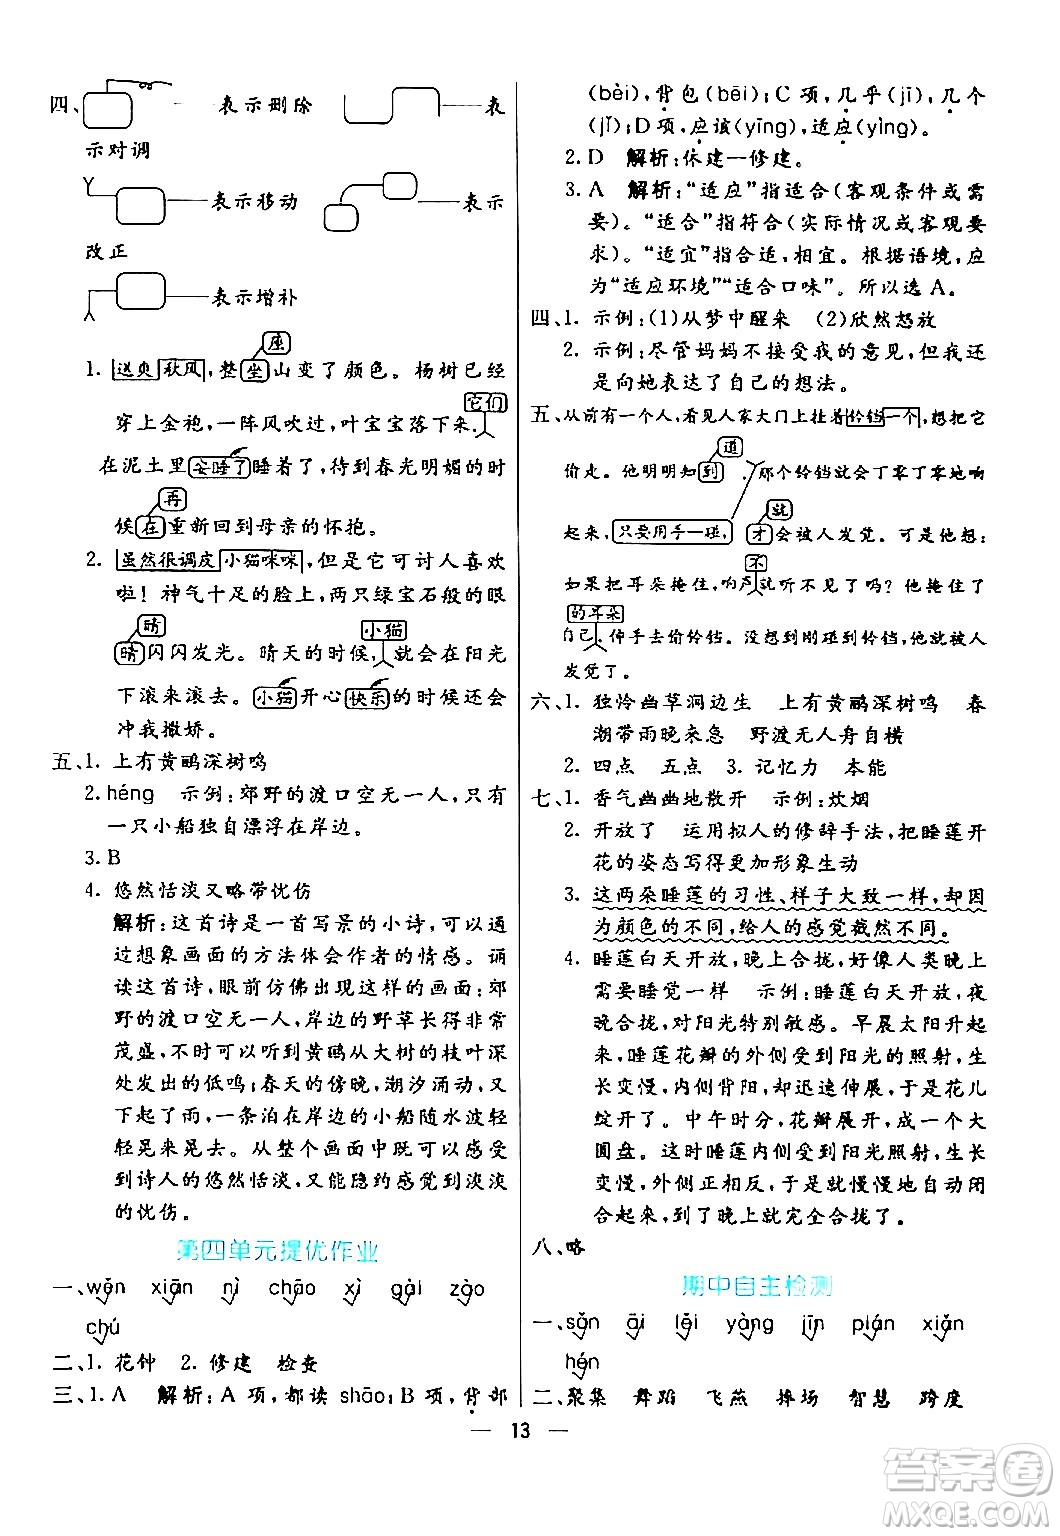 四、 表示删除 表
示对调
表示移动 表示
改正
表示增补
座
1. 送爽秋风,整坐山变了颜色。杨树已经
它们
穿上金袍,一阵风吹过,叶宝宝落下来,
在泥土里安睡了睡着了,待到春光明媚的时
再
候在重新回到母亲的怀抱。
2. 虽然很调皮小猫咪咪,但是它可讨人喜欢
啦!神气十足的脸上,两只绿宝石般的眼
睛 小猫
晴闪闪发光。晴天的时候,就会在阳光
下滚来滚去。小猫开心快乐的时候还会
冲我撒娇。
五、1. 上有黄鹂深树鸣
2. héng 示例:郊野的渡口空无一人,只有
一只小船独自漂浮在岸边。
3. B
4. 悠然恬淡又略带忧伤
解析:这首诗是一首写景的小诗,可通
过想象画面的方法体会作者的情感。诵
读这首诗,眼前仿佛出现这样的画面:郊
野的渡口空无一人,岸边的野草长得非常
茂盛,不时可以听到黄鹂从大树的枝叶深
处发出的低鸣;春天的傍晚,潮汐涌动,又
下起了雨,一条泊在岸边的小船随水波轻
轻晃来晃去。从整个画面中既可以感受
到诗人的悠然恬淡,又能隐约感觉到淡淡
的忧伤。
第四单元提优作业
一、wěn xiān nì chāo xì gài zào
chú
二、1. 花钟 2. 修建 检查
三、1. A 解析:A 项,都读 shāo;B 项,背部
(bèi),背包(bēi);C 项,几乎(jī),几个
(jǐ);D 项,应该(yīng),适应(yìng)。
2. D 解析:休建—修建。
3. A 解析:“适应”指适合(客观条件或需
要)。“适合”指符合(实际情况或客观要
求)。“适宜”指合适,相宜。根据语境,应
为“适应环境”“适合口味”。所以选 A。
四、1. 示例:(1)从梦中醒来 (2)欣然怒放
2. 示例:尽管妈妈不接受我的意见,但我还
是向她表达了自己的想法。
五、从前有一个人,看见人家大门上挂着铃铛一个,想把它
道
偷走。他明明知到,那个铃铛就会丁零丁零地响
就
起来,只要用手一碰,才会被人发觉。可他想:
不
如果把耳朵掩住,响声就听不见了吗?他掩住
的耳朵
自己,伸手去偷铃铛。没想到刚碰到铃铛,就被人
发觉了。
六、1. 独怜幽草涧边生 上有黄鹂深树鸣 春
潮带雨晚来急 野渡无人舟自横
2. 四点 五点 3. 记忆力 本能
七、1. 香气幽幽地散开 示例:炊烟
2. 开放了 运用拟人的修辞手法,把睡莲开
花的姿态写得更加形象生动
3. 这两朵睡莲的习性、样子大致一样,却因
为颜色的不同,给人的感觉截然不同。
4. 睡莲白天开放,晚上合拢,好像人类晚上
需要睡觉一样 示例:睡莲白天开放,夜
晚合拢,对阳光特别敏感。早晨太阳升起
来,睡莲花瓣的外侧受到阳光的照射,生
长变慢,内侧背阳,却迅速伸展,于是花儿
绽开了。中午时分,花瓣展开,成一个大
圆盘。这时睡莲内侧受到阳光照射,生长
变慢,外侧正相反,于是慢慢地自动闭
合起来,到了晚上就完全合拢了。
八、略
期中自主检测
一、sǎn āi lěi yàng jīn pián xiān
hén
二、聚集 舞蹈 飞燕 捧场 智慧 跨度
13
答案圈
MXQE.COM